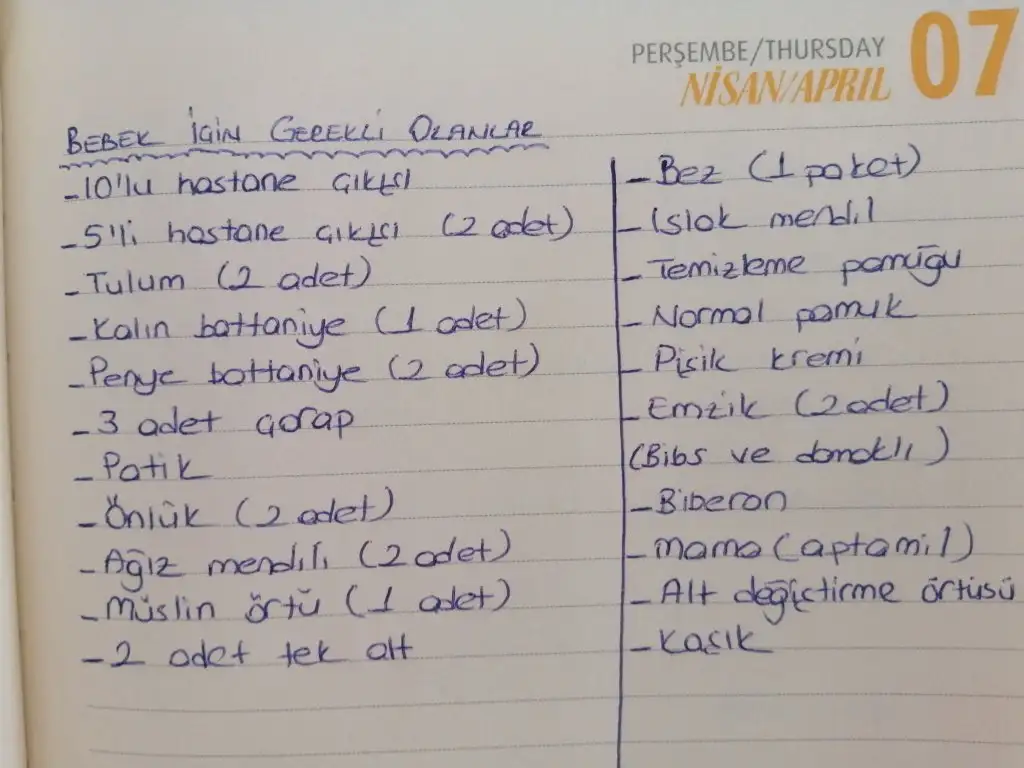 PERŞEMBE/THURSDAY
NİSAN/APRIL
07
BEBEK İÇİN GEREKLİ OLANLAR
- 10'lu hastane çıkışı
- 5'li hastane çıkışı (2 adet)
- Tulum (2 adet)
- Kalın battaniye (1 adet)
- Penye battaniye (2 adet)
- 3 adet çorap
- Patik
- Önlük (2 adet)
- Ağız mendili (2 adet)
- Müslin örtü (1 adet)
- 2 adet tek alt
- Bez (1 paket)
- Islak mendil
- Temizleme pamuğu
- Normal pamuk
- Pişik kremi
- Emzik (2 adet)
(Bibs ve damaklı)
- Biberon
- Mama (aptamil)
- Alt değiştirme örtüsü
- Kaşık